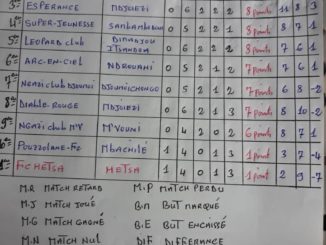 3e ESPERANCE MDJOIEZI 0 6 2 2 2 8 points 11 8 3
4e SUPER-JEUNESSE 0 6 2 2 2 8 points 8 7 1
5e LEOPARD club 0 5 2 2 1 8 points 7 6 1
6e ARC-EN-CIEL NDROUANI 0 5 2 1 2 7 points 8 7 1
7e NGAZI club DJOUMOI DJOUMOICHONGO 0 5 2 1 2 7 points 6 8 -2
8e DIABLE-ROUGE MDJOIEZI 0 6 2 1 3 7 points 8 10 -2
9e NGAZI CLUB MV M'VOUNI 0 4 2 0 2 6 points 8 7 1
POUZZOLANE-FC MBACHILÉ 1 4 0 1 3 1 point 4 8
FICHETSA HETSA 1 4 0 1 3 1 point 2 9 -7
M.R MATCH RETARD M.P MATCH PERDU
M.J MATCH JOUÉ B.M BUT MARQUÉ
M.G MATCH GAGNÉ B.E BUT ENCAISSÉ
M.N MATCH NUL DIF DIFFERANCE